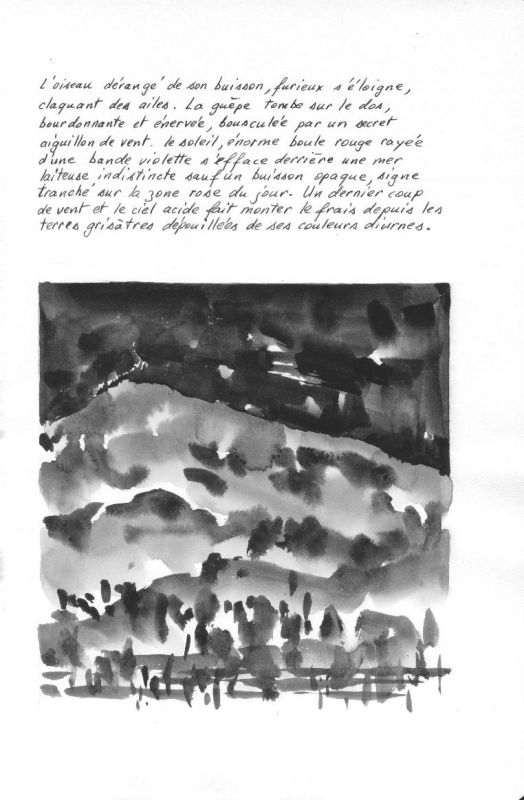 L'oiseau dérangé de son buisson, furieux s'éloigne,
claquant des ailes. La guêpe tombe sur le dos,
bourdonnante et énervée, bousculée par un secret
aiguillon de vent. le soleil, énorme boule rouge rayée
d'une bande violette s'efface derrière une mer
laiteuse indistincte sauf un buisson opaque, signe
tranché sur la zone rose du jour. Un dernier coup
de vent et le ciel acide fait monter le frais depuis les
terres grisâtres dépouillées de ses couleurs diurnes.